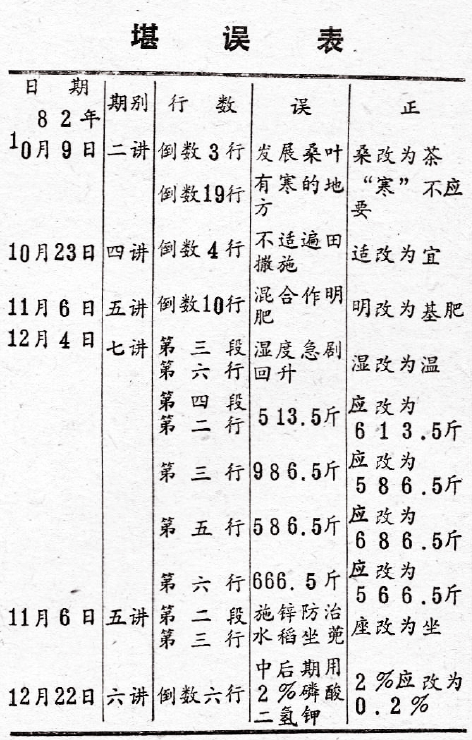 堪误表
日期 期别 行数 误 正
82年
10月9日 二讲 倒数3行 发展桑叶 桑改为茶
倒数19行 有寒的地方 “寒”不应要
10月23日 四讲 倒数4行 不适遍田撒施 适改为宜
11月6日 五讲 倒数10行 混合作明肥 明改为基肥
12月4日 七讲 第三段第六行 湿度急剧回升 湿改为温
第四段第二行 513.5斤 应改为613.5斤
第三行 986.5斤 应改为586.5斤
第五行 586.5斤 应改为686.5斤
第六行 666.5斤 应改为566.5斤
11月6日 五讲 第二段第三行 施锌防治水稻坐蔸 座改为坐
12月22日 六讲 倒数六行 中后期用2%磷酸二氢钾 2%应改为0.2%